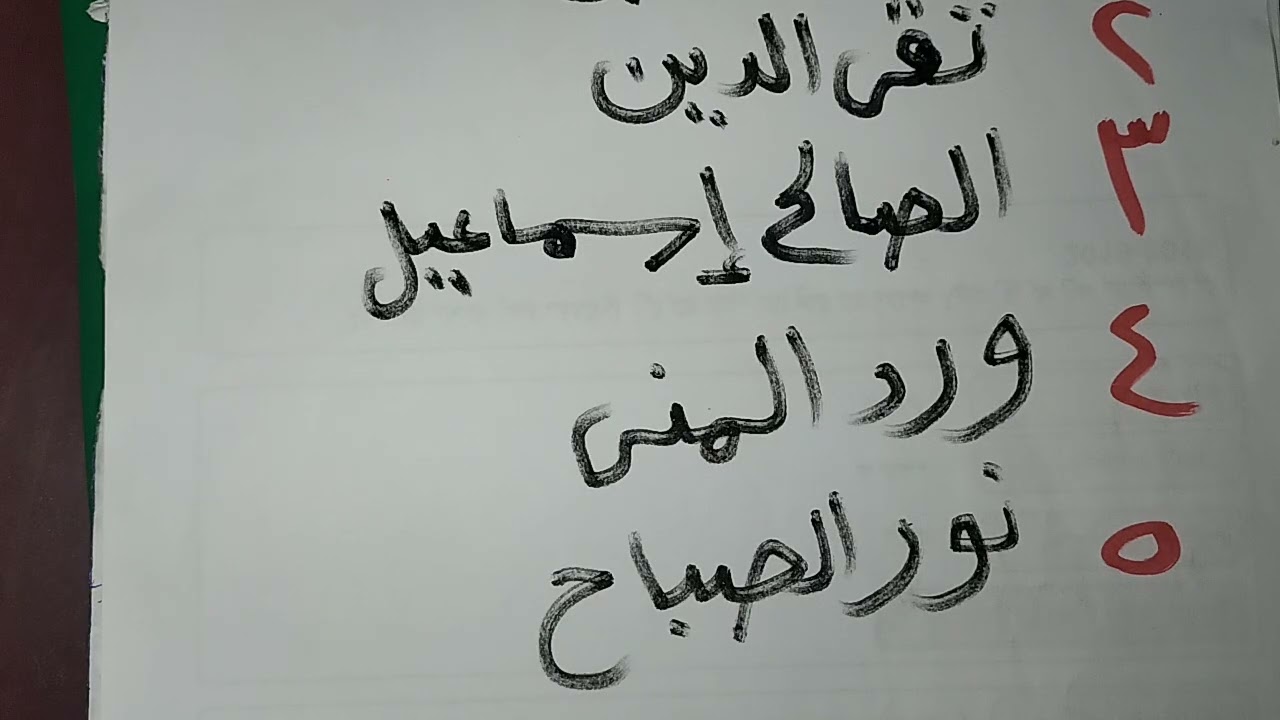 ٢ تقى الدين
٣ الصالح إسماعيل
٤ ورد المنى
٥ نور الصباح